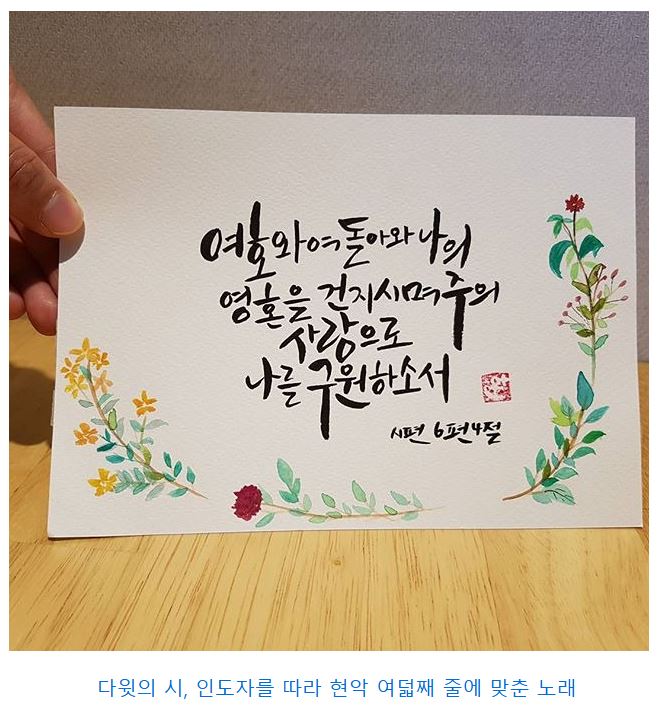 여호와여 돌아와 나의
영혼을 건지시며 주의
사랑으로
나를 구원하소서
시편 6편 4절
다윗의 시, 인도자를 따라 현악 여덟째 줄에 맞춘 노래